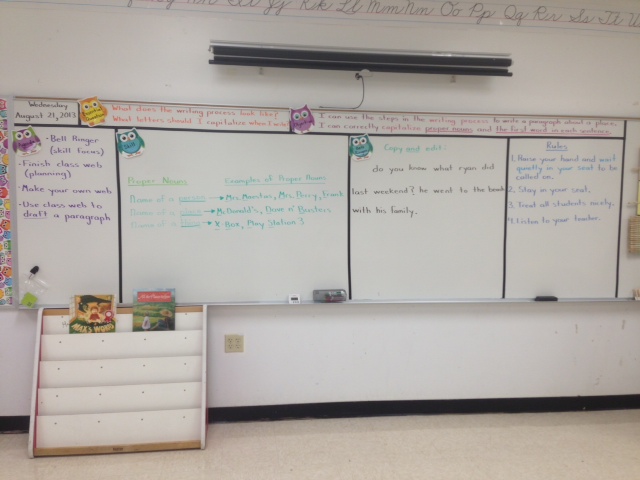 Kk Ll Mm Nn Oo Pp Qq Rr Ss Tt
Wednesday
August 21, 2013
What does the writing process look like?
What letters should I capitalize when I write?
I can use the steps in the writing process to write a paragraph about a place.
I can correctly capitalize proper nouns and the first word in each sentence.
- Bell Ringer
(skill focus)
- Finish class web
(planning)
- Make your own web
- Use class web to
draft a paragraph
Skill
Proper Nouns
Examples of Proper Nouns
Name of a person → Mrs. Perry, Frank
Name of a place → McDonald's, Dave n' Busters
Name of a thing → X Box, Play Station 3
Copy and edit:
do you know what ryan did
last weekend? he went to the beach
with his family.
Rules
1. Raise your hand and wait
quietly in your seat to be
called on.
2. Stay in your seat.
3. Treat all students nicely.
4. Listen to your teacher.